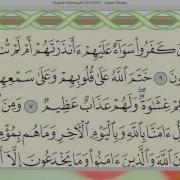 ين كَفَرُوا۟ سَوَآءٌ عَلَيْهِمْ ءَأَنذَرْتَهُمْ أَمْ لَمْ تُن
ونَ ٦ خَتَمَ ٱللَّهُ عَلَىٰ قُلُوبِهِمْ وَعَلَىٰ سَمْعِهِم
هِمْ غِشَـٰوَةٌ وَلَهُمْ عَذَابٌ عَظِيمٌ ٧ وَمِنَ
ءَامَنَّا بِٱللَّهِ وَبِٱلْيَوْمِ ٱلْـَٔاخِرِ وَمَا هُم بِمُؤْمِ
نَ ٱللَّهَ وَٱلَّذِينَ ءَامَنُوا۟ وَمَا يَخْدَعُونَ إِلَّآ أَ